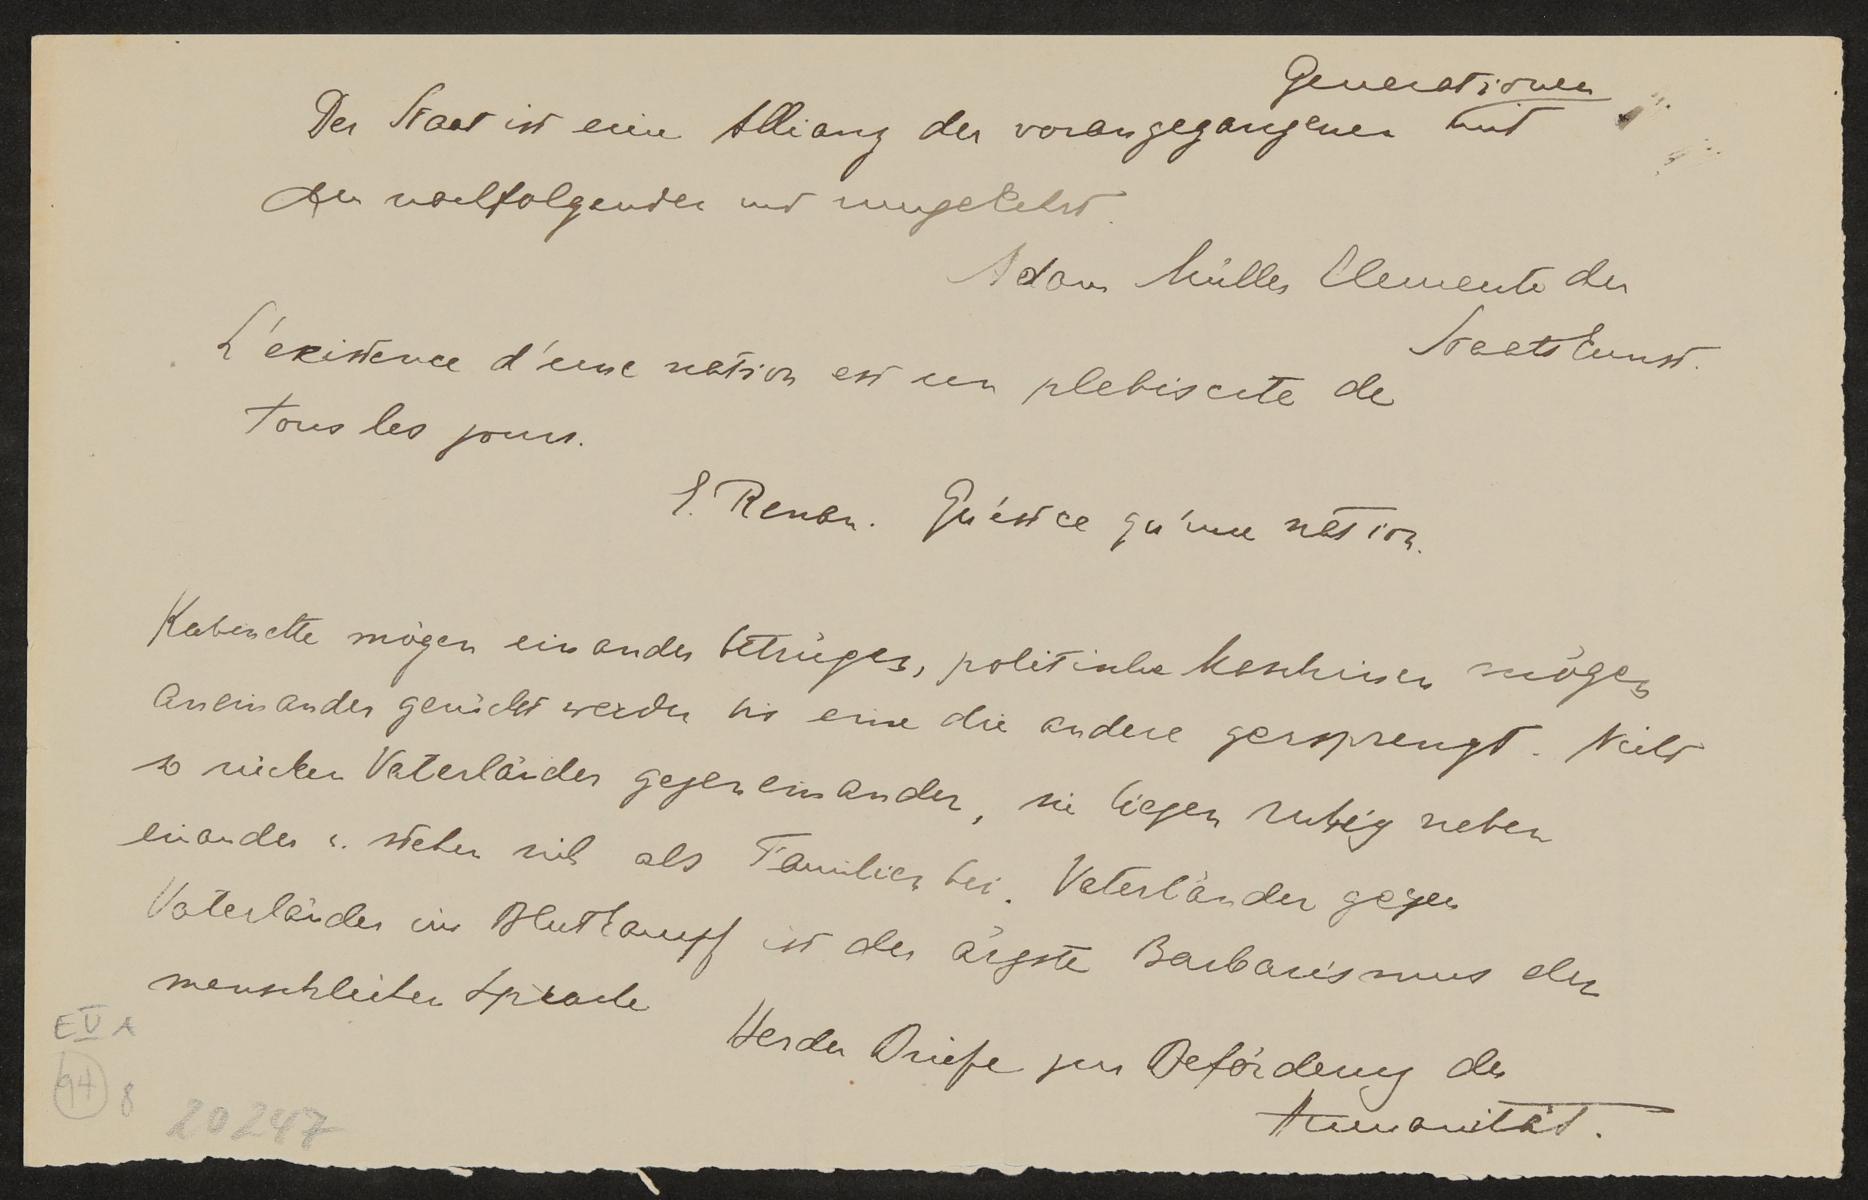 Generationen
Der Staat ist eine Allianz der vorangegangenen mit
den nachfolgenden und umgekehrt.
Adam Müller Elemente der
Staatskunst.
L'existence d'une nation est un plebiscite de
tous les jours.
E. Renan. Qu'est ce qu'une nation.
Kabinette mögen einander betrügen, politische Maschinen mögen
aneinander gerückt werden bis eine die andere zersprengt. Nicht
so rücken Vaterländer gegeneinander, sie liegen ruhig neben
einander u. stehen sich als Familien bei. Vaterländer gegen
Vaterländer im Blutkampf ist der ärgste Barbarismus der
menschlichen Sprache
Herder Briefe zur Beförderung der
Humanität.
E V A
94 8
20247